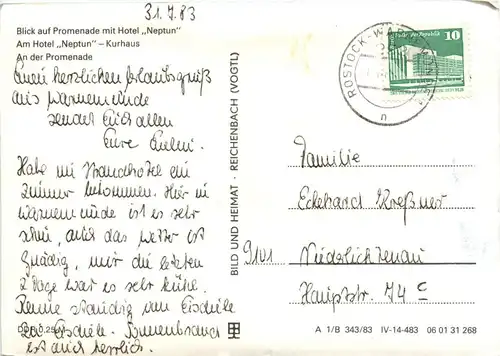 31.7.83
Blick auf Promenade mit Hotel „Neptun"
Am Hotel „Neptun" – Kurhaus
An der Promenade
Einen herzlichen Urlaubsgruß
aus Warnemünde
sendet Euch allen
Eure
Habe im Strandhotel ein
Zimmer bekommen. Hier in
Warnemünde ist es sehr
schön, auch das Wetter ist
gnädig, nur die letzten
2 Tage war es sehr kühl.
Renne ständig von Eisdiele
zu Eisdiele. Sonnenbrand
ist auch herrlich.
BILD UND HEIMAT · REICHENBACH (VOGTL)
ROSTOCK-WARNEMÜNDE
n
10
Familie
Eckehard Kreßner
9101 Niederlichtenau
Hauptstr. 74 c
A 1/B 343/83 IV-14-483 06 01 31 268